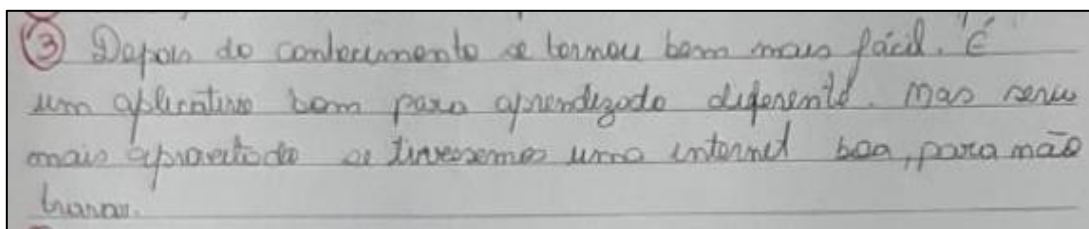 ③ Depois do conhecimento se tornou bem mais fácil. É
um aplicativo bom para aprendizado diferente. Mas seria
mais aproveitado se tivessemos uma internet boa, para não
travar.